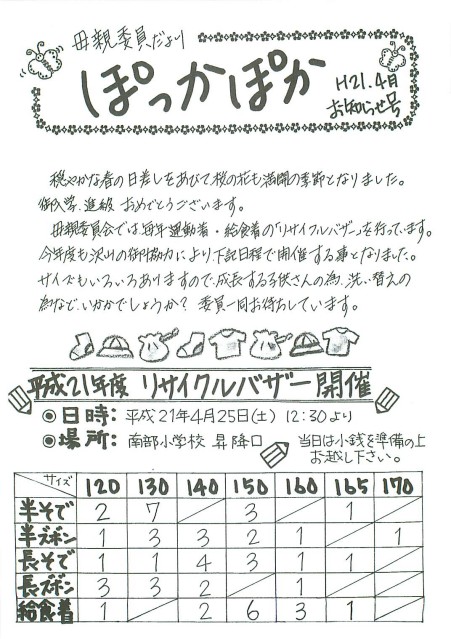 母親委員だより
ぽっかぽか
H21.4月
お知らせ号
穏やかな春の日差しをあびて桜の花も満開の季節となりました。
御入学、進級 おめでとうございます。
母親委員会では毎年運動着・給食着の「リサイクルバザー」を行っています。
今年度も沢山の御協力により、下記日程で開催する事となりました。
サイズもいろいろありますので、成長する子供さんの為、洗い替えの
為など、いかがでしょうか？ 委員一同お待ちしています。
平成21年度 リサイクルバザー開催
◉日時: 平成21年4月25日(土) 12:30より
◉場所: 南部小学校 昇降口
当日は小銭を準備の上
お越し下さい。
サイズ 120 130 140 150 160 165 170
半そで 2 7 3 1
半ズボン 1 3 3 2 1 1
長そで 1 1 4 3 1 1
長ズボン 3 3 2 1
給食着 1 2 6 3 1